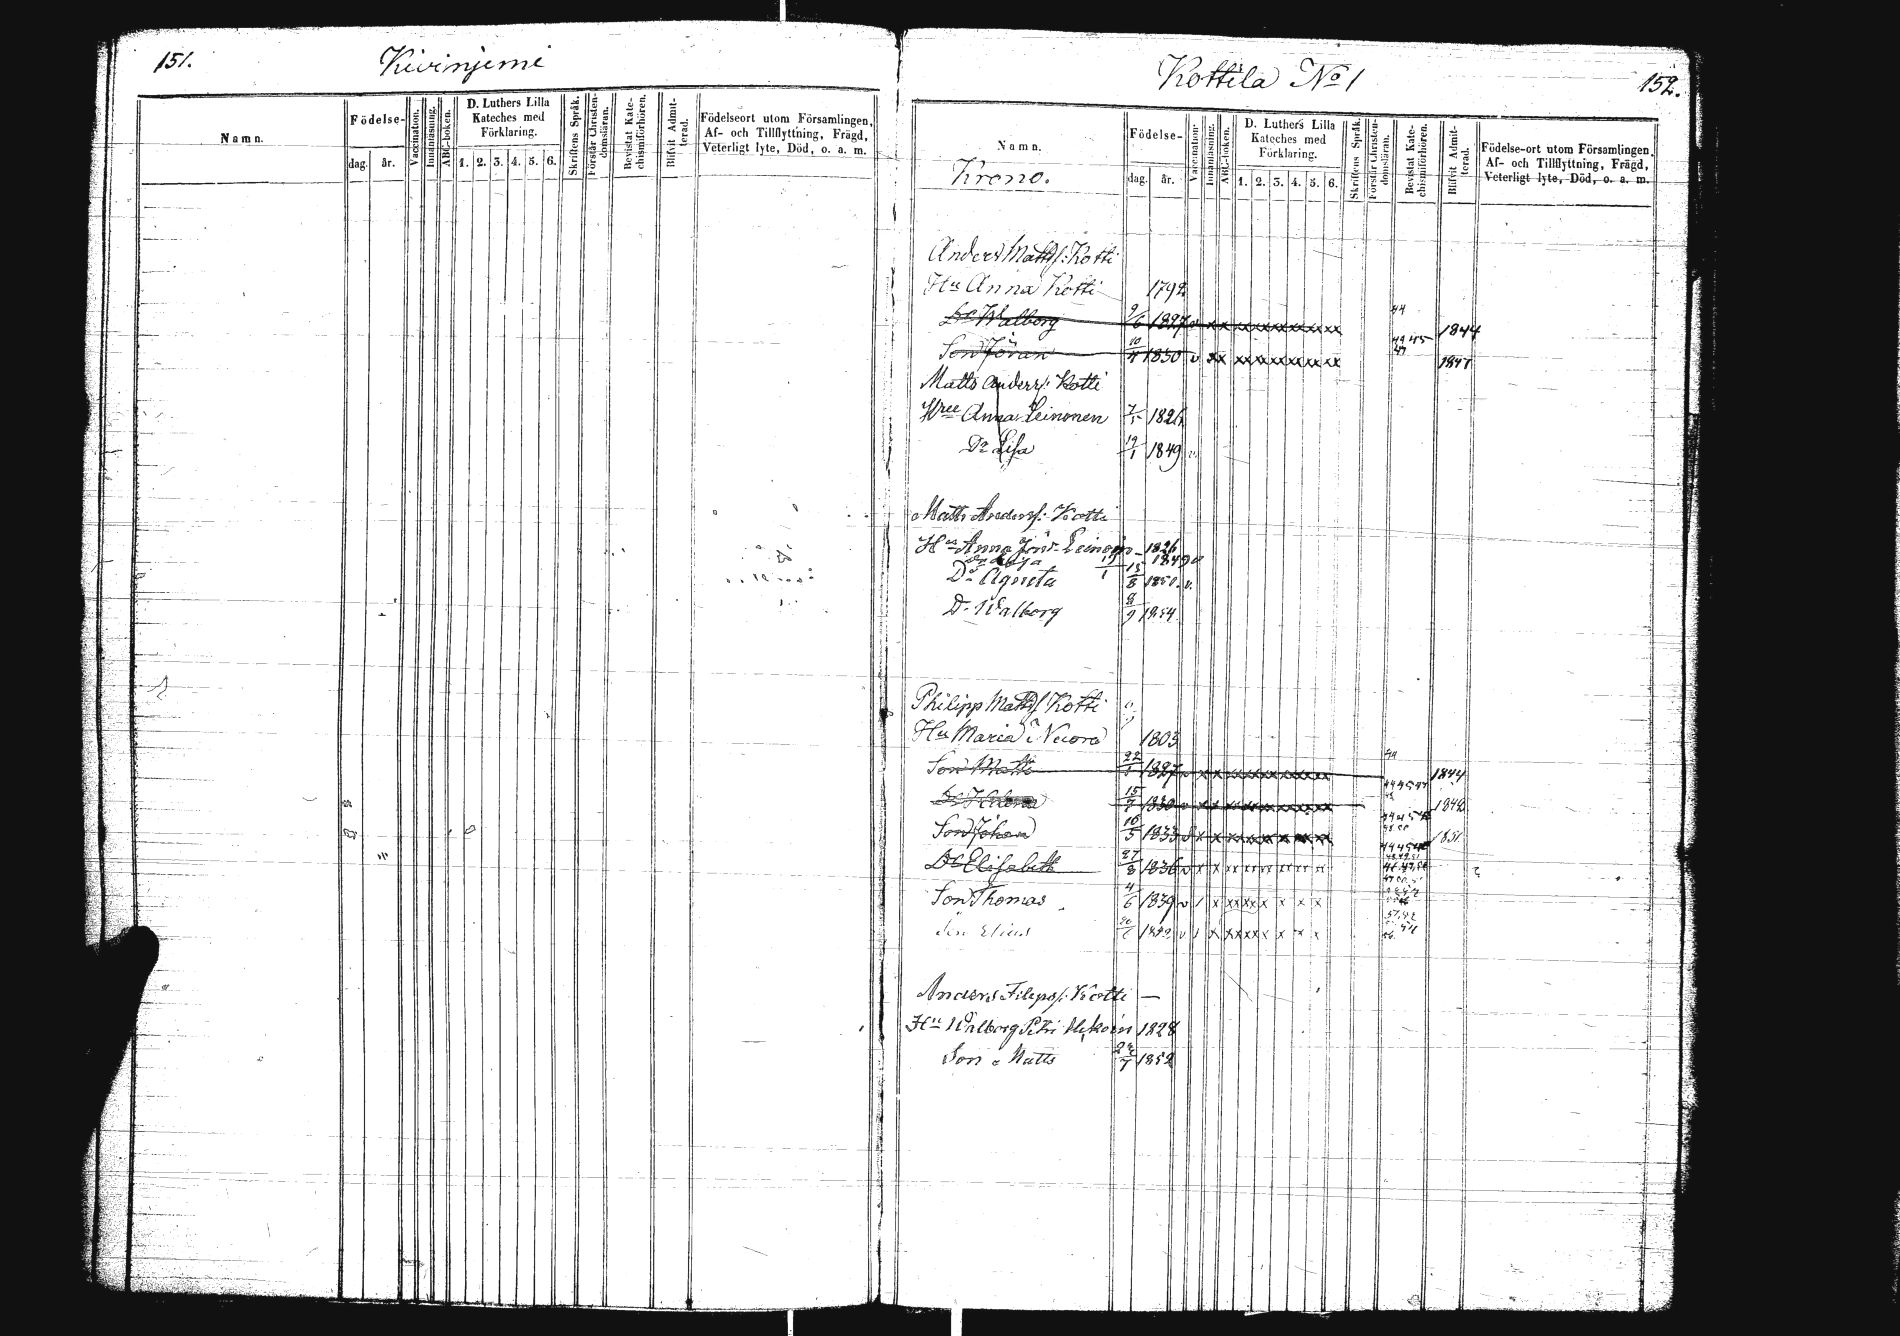 151.
Kivinjemi
Namn.
Födelse-
dag. år.
Vaccination.
Innanläsning.
ABC-boken.
D. Luthers Lilla
Kateches med
Förklaring.
1. 2. 3. 4. 5. 6.
Skriftens Språk.
Förstår Christen-
domsläran.
Bevistat Kate-
chismiförhören.
Blifvit Admit-
terad.
Födelseort utom Församlingen,
Af- och Tillflyttning, Frägd,
Veterligt lyte, Död, o. a. m.
Kottila No 1
152.
Namn.
Krono.
Födelse-
dag. år.
Vaccination.
Innanläsning.
ABC-boken.
D. Luthers Lilla
Kateches med
Förklaring.
1. 2. 3. 4. 5. 6.
Skriftens Språk.
Förstår Christen-
domsläran.
Bevistat Kate-
chismiförhören.
Blifvit Admit-
terad.
Födelse-ort utom Församlingen,
Af- och Tillflyttning, Frägd,
Veterligt lyte, Död, o. a. m.
Anders Matts: Kotti
Hu Anna Kotti 1792
Dr Walborg 9/6 1827 v x x xx xx xx xx xx xx 44 1844
Son Jöran 10/4 1830 v x x xx xx xx xx xx xx 1847
Matts Anders: Kotti
Anna Leinonen 7/5 1826
Dr Lisa 19/1 1849 v.
Matts Anders: Kotti
Hu Anna Leinon 1826
19/1 1849 v
Dr Agneta 15/8 1850. v.
Dr Walborg 8/9 1854
Philipp Matts Kotti
Hu Maria Nuora 1803
Son Matts 22/1 1827 v x x xx xx xx xx xx xx 44 1844
Dr Helena 15/7 1830 v x x xx xx xx xx xx xx 1848
Son Johan 16/5 1833 x x xx xx xx xx xx xx 1851
Dr Elisabeth 27/8 1836 v x x xx xx xx xx xx xx
Son Thomas 4/6 1839 v x xx xx x x x x
Son Elias 1842 v x xx xx x x x x
Anders Filips: Kotti —
Hu Walborg Petri 1828
Son Matts 1852